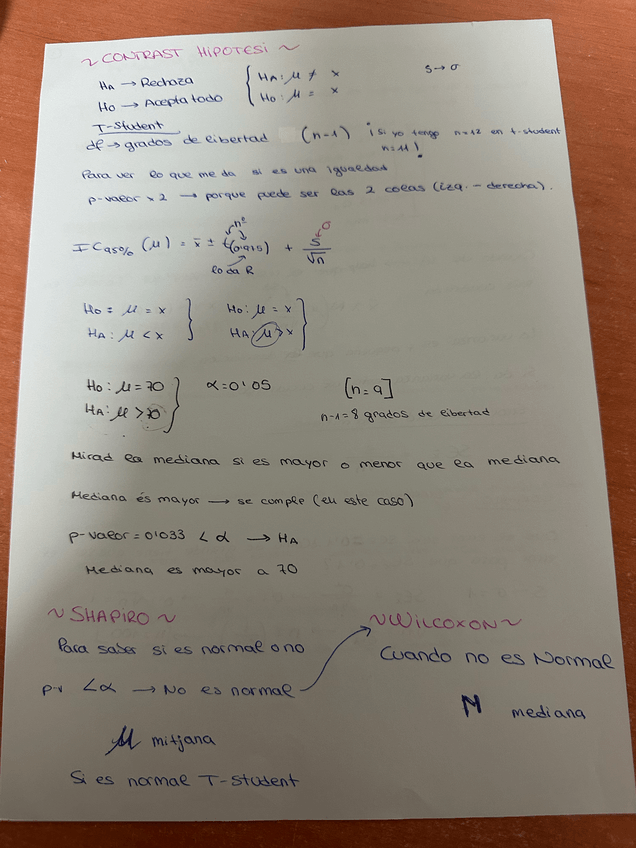 ~ CONTRAST HIPOTESI ~
HA → Rechaza { HA: μ ≠ x S → σ
H0 → Acepta todo H0: μ = x
T-Student
df → grados de libertad (n-1) ¡si yo tengo n=12 en t-student
n=11!
Para ver lo que me da si es una igualdad
p-valor x 2 → porque puede ser las 2 colas (izq. - derecha).
nº σ
IC95% (μ) = x̄ ± t(0.975) + S/√n
lo da R
H0 = μ = x } H0: μ = x }
HA: μ < x HA: μ > x
H0: μ = 70 } α = 0'05 [n=9]
HA: μ > 70 n-1 = 8 grados de libertad
Mirad la mediana si es mayor o menor que la mediana
Mediana és mayor → se cumple (en este caso)
p-valor = 0'033 < α → HA
Mediana es mayor a 70
~ SHAPIRO ~ ~ WILCOXON ~
Para saber si es normal o no Cuando no es Normal
p-v < α → No es normal
M mediana
μ mitjana
Si es normal T-Student